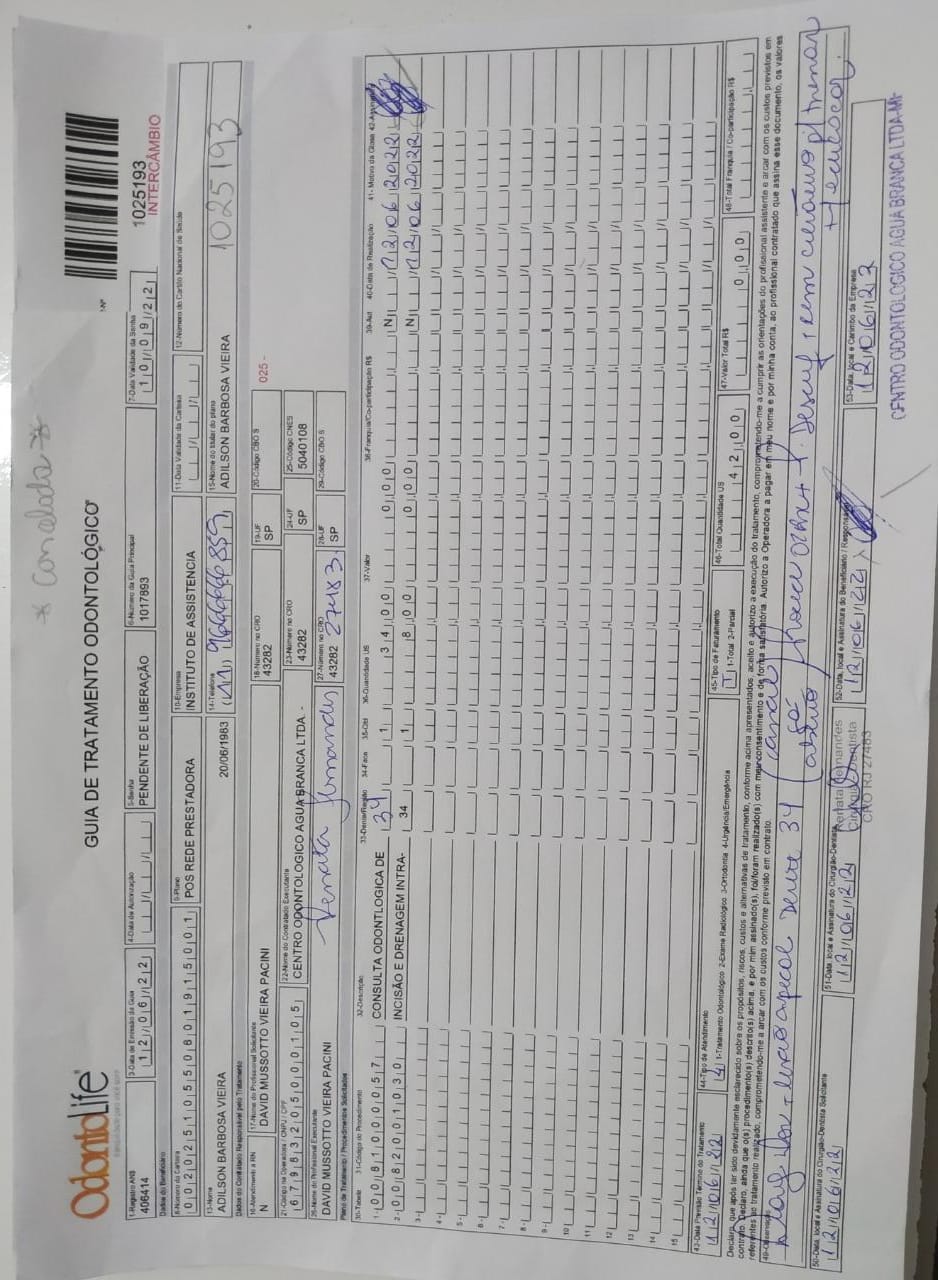 * Cancelada *
OdontoLife
GUIA DE TRATAMENTO ODONTOLÓGICO
1025193
INTERCÂMBIO
1-Registro ANS
406414
3-Data de Emissão da Guia
12/06/22
4-Data de Autorização
5-Senha
PENDENTE DE LIBERAÇÃO
6-Número da Guia Principal
1017893
7-Data Validade da Senha
10/09/22
Dados do Beneficiário
8-Número da Carteira
9-Plano
POS REDE PRESTADORA
10-Empresa
INSTITUTO DE ASSISTENCIA
11-Data Validade da Carteira
12-Número do Cartão Nacional de Saúde
13-Nome
ADILSON BARBOSA VIEIRA
20/06/1983
14-Telefone
15-Nome do titular do plano
ADILSON BARBOSA VIEIRA
1025193
Dados do Contratado Responsável pelo Tratamento
16-Atendimento a RN
N
17-Nome do Profissional Solicitante
DAVID MUSSOTTO VIEIRA PACINI
18-Número no CRO
43282
19-UF
SP
20-Código CBO S
025 -
21-Código na Operadora / CNPJ / CPF
67983205000105
22-Nome do Contratado Executante
CENTRO ODONTOLOGICO AGUA BRANCA LTDA. -
23-Número no CRO
43282
24-UF
SP
25-Código CNES
5040108
26-Nome do Profissional Executante
DAVID MUSSOTTO VIEIRA PACINI
Renata Fernandes
27-Número no CRO
43282 27483
28-UF
SP
29-Código CBO S
Plano de Tratamento / Procedimentos Solicitados
30-Tabela 31-Código do Procedimento 32-Descrição 33-Dente/Região 34-Face 35-Qtd 36-Quantidade US 37-Valor 38-Franquia/Co-participação R$ 39-Aut 40-Data de Realização 41-Motivo da Glosa 42-Assinatura
1- 00 81000057 CONSULTA ODONTLOGICA DE 34 1 34,00 0,00 N 12/06/2022
2- 00 82001030 INCISÃO E DRENAGEM INTRA- 34 1 8,00 0,00 N 12/06/2022
3-
4-
5-
6-
7-
8-
9-
10
11
12
13
14
15
43-Data Previsão Término do Tratamento
12/06/22
44-Tipo de Atendimento
4 1-Tratamento Odontológico 2-Exame Radiológico 3-Ortodontia 4-Urgência/Emergência
45-Tipo de Faturamento
1 1-Total 2-Parcial
46-Total Quantidade US
42,00
47-Valor Total R$
0,00
48-Total Franquia / Co-participação R$
Declaro, que após ter sido devidamente esclarecido sobre os propósitos, riscos, custos e alternativas de tratamento, conforme acima apresentados, aceito e autorizo a execução do tratamento, comprometendo-me a cumprir as orientações do profissional assistente e arcar com os custos previstos em
contrato. Declaro, ainda que o(s) procedimento(s) descrito(s) acima, e por mim assinado(s), foi/foram realizado(s) com meu consentimento e de forma satisfatória. Autorizo a Operadora a pagar em meu nome e por minha conta, ao profissional contratado que assina esse documento, os valores
referentes ao tratamento realizado, comprometendo-me a arcar com os custos conforme previsto em contrato.
49-Observação
Dente 34
50-Data, local e Assinatura do Cirurgião-Dentista Solicitante
12/06/22
51-Data, local e Assinatura do Cirurgião-Dentista
12/06/22
Renata Fernandes
Cirurgiã Dentista
CRO RJ 27483
52-Data, local e Assinatura do Beneficiário / Responsável
12/06/22
53-Data, local e Carimbo da Empresa
12/06/22
CENTRO ODONTOLOGICO AGUA BRANCA LTDA-ME